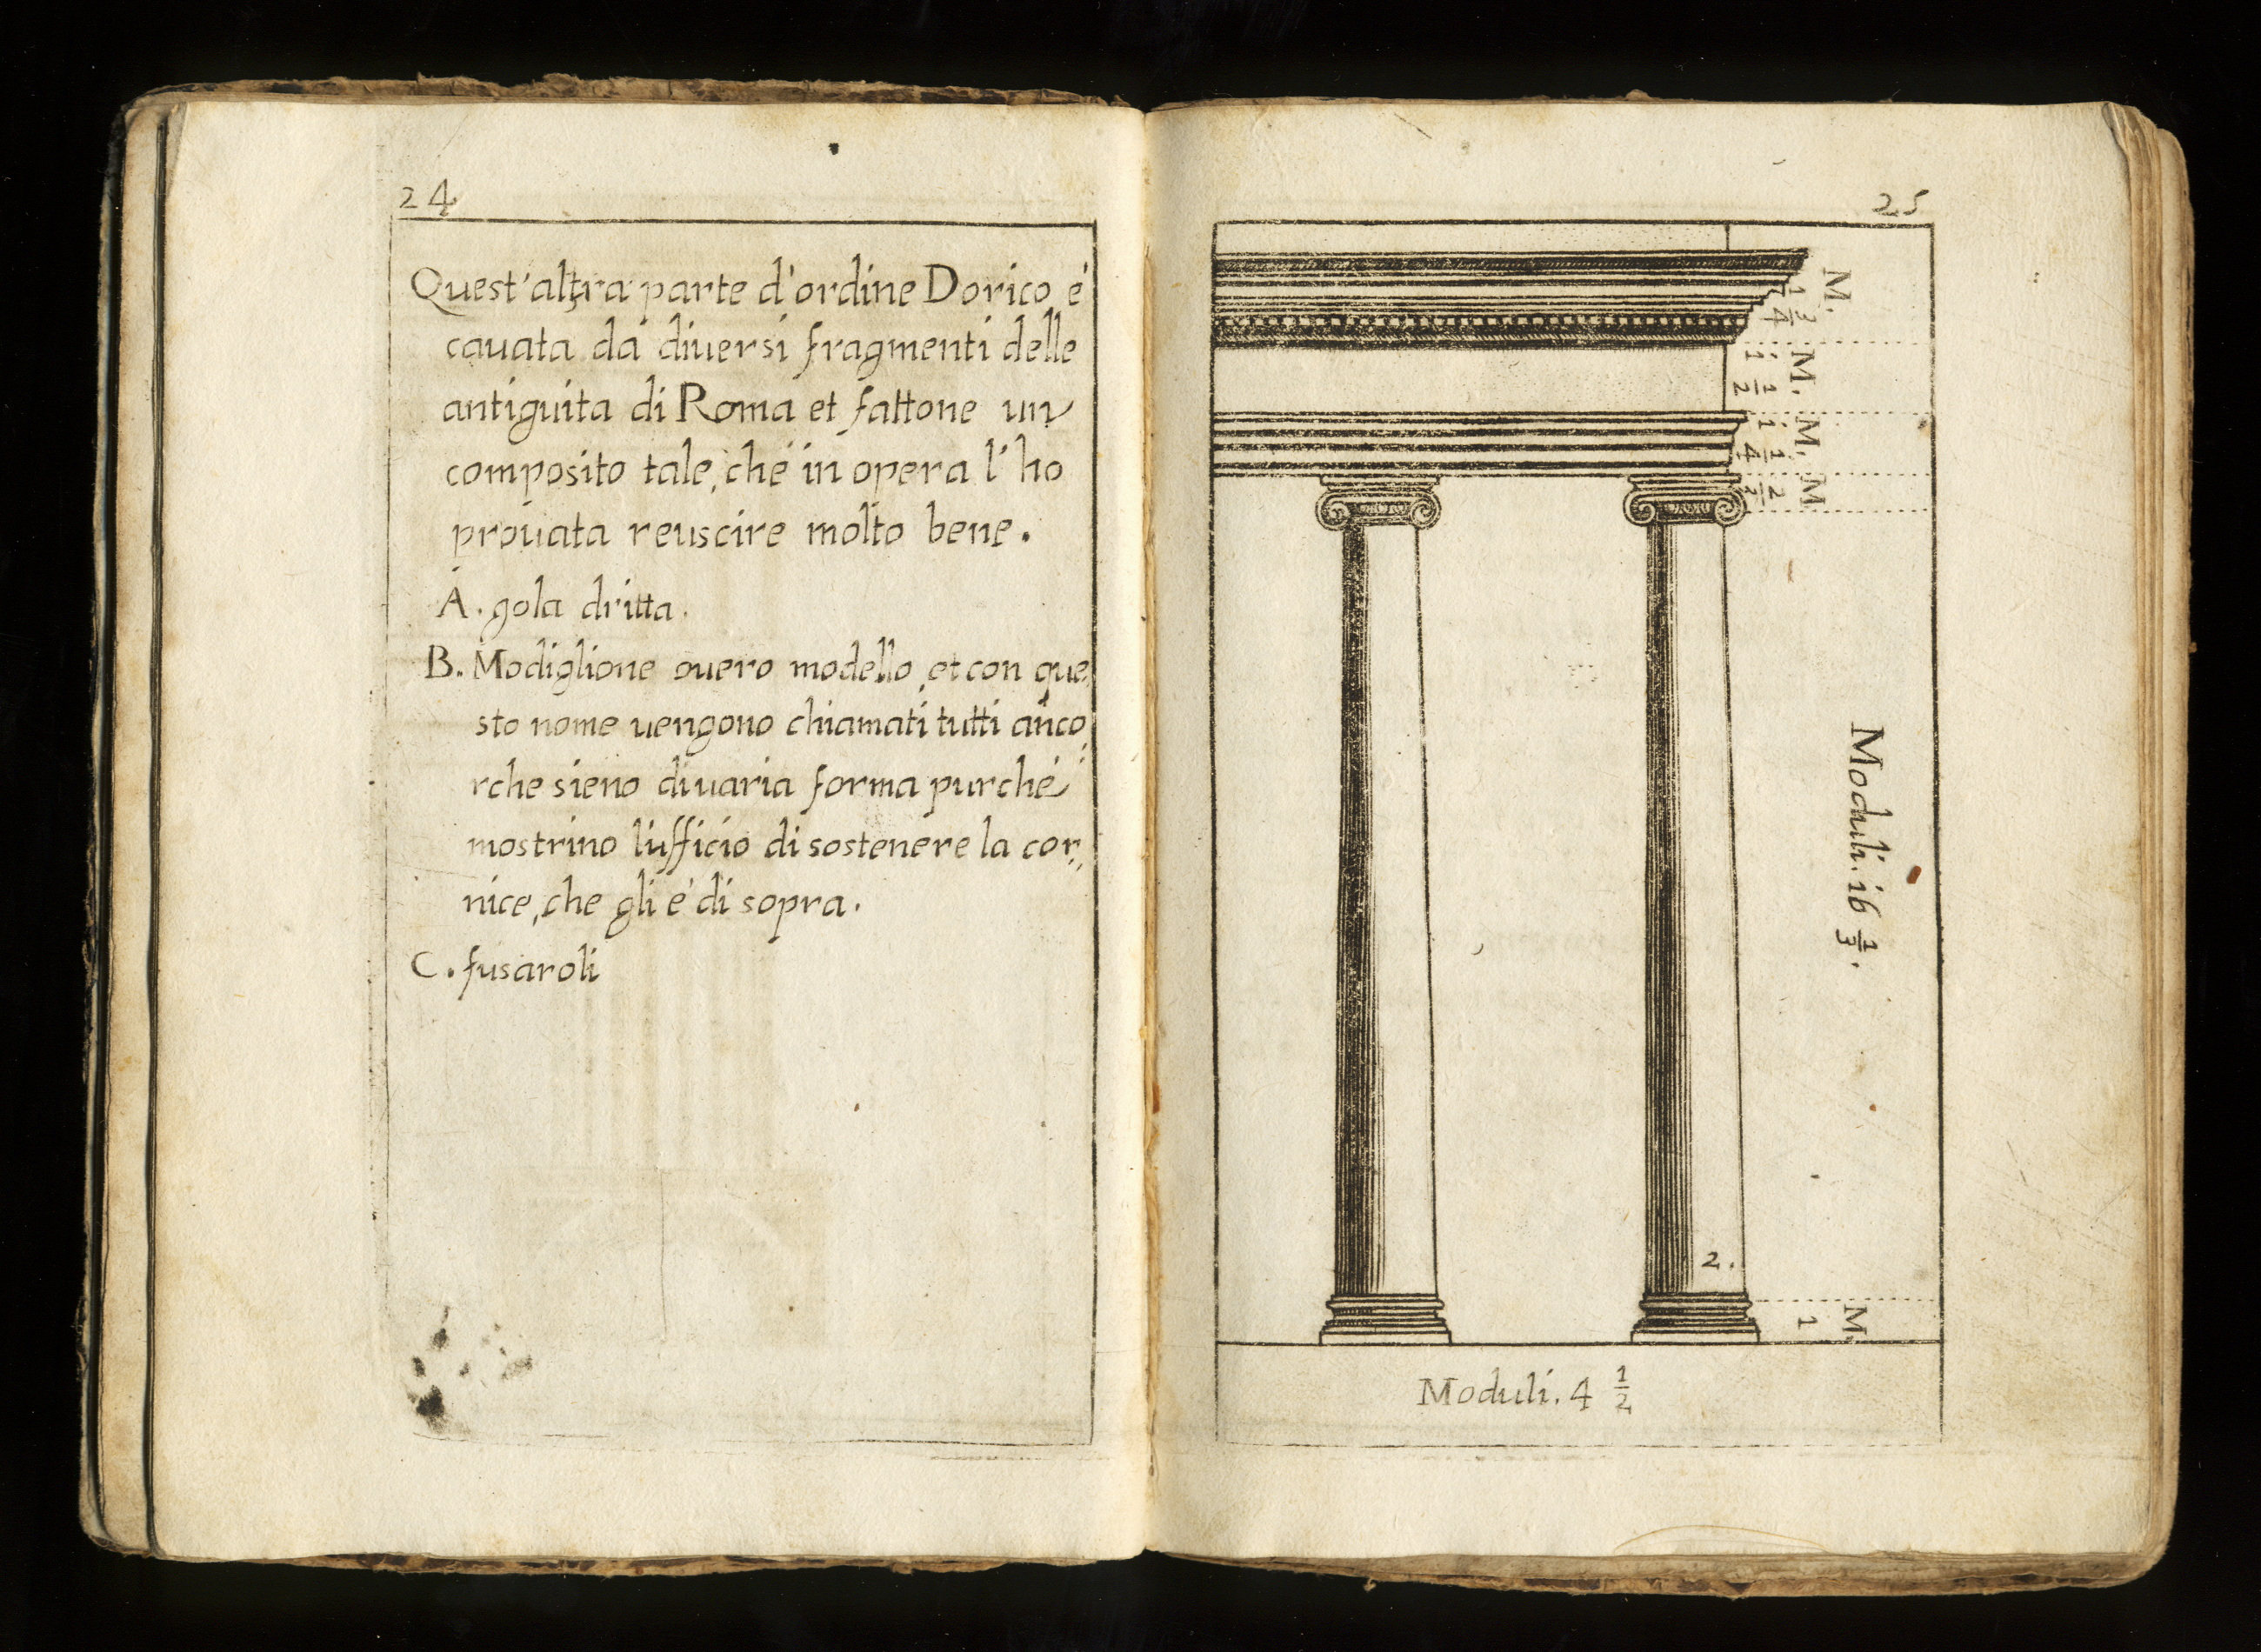 24
Quest'altra parte d'ordine Dorico é
cauata dá diuersi fragmenti delle
antiguita di Roma et fattone un
composito tale, ché in opera l'ho
prouata reuscire molto bene.
A. gola dritta.
B. Modiglione ouero modello, et con que,
sto nome uengono chiamati tutti anco,
rche sieno di uaria forma purché
mostrino l'ufficio di sostenere la cor,,
nice, che gli é di sopra.
C. fusaroli
25
M.
1 3/4
M.
1 1/2
M.
1 1/4
M.
2/3
Moduli. i6 1/3.
2.
M.
1
Moduli. 4 1/2